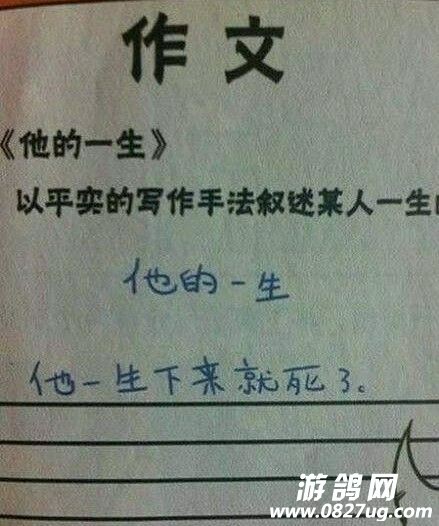 作文
《他的一生》
以平实的写作手法叙述某人一生
他的一生
他一生下来就死了。
游鸽网
www.0827ug.com